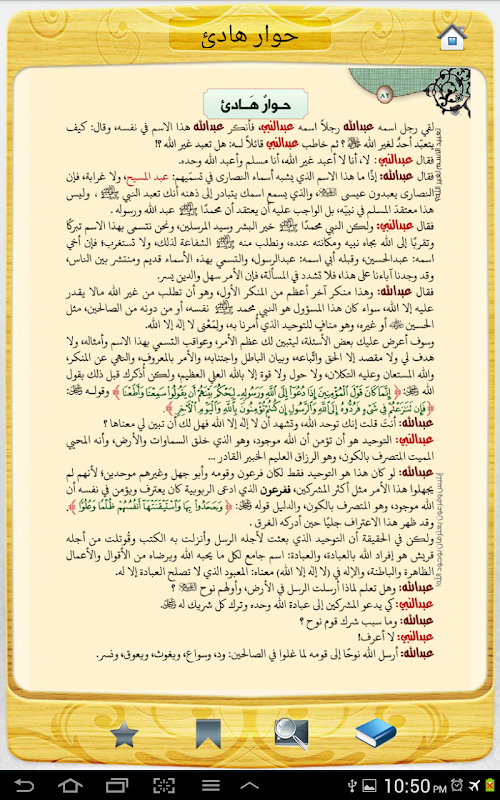 حوار هادئ
٨٢
حـوارٌ هَــادئ
تعبيد الاسم لغير الله
لقي رجل اسمه عبدالله رجلاً اسمه عبدالنبي، فأنكر عبدالله هذا الاسم في نفسه، وقال: كيف
يتعبّد أحدٌ لغير الله ﷻ؟ ثم خاطب عبدالنبي قائلاً له: هل تعبد غير الله ؟!
فقال عبدالنبي: لا، أنا لا أعبد غير الله، أنا مسلم وأعبد الله وحده.
فقال عبدالله: إذًا ما هذا الاسم الذي يشبه أسماء النصارى في تسمّيهم: عبد المسيح، ولا غرابة، فإن
النصارى يعبدون عيسى، والذي يسمع اسمك يتبادر إلى ذهنه أنك تعبد النبي ﷺ، وليس
هذا معتقدَ المسلم في نبيّه، بل الواجب عليه أن يعتقد أن محمدًا ﷺ عبد الله ورسوله.
فقال عبدالنبي: ولكن النبي محمدًا ﷺ خير البشر وسيد المرسلين، ونحن نتسمى بهذا الاسم تبركًا
وتقربًا إلى الله بجاه نبيه ومكانته عنده، ونطلب منه ﷺ الشفاعة لذلك، ولا تستغرب؛ فإن أخي
اسمه: عبدالحسين، وقبله أبي اسمه: عبدالرسول، والتسمي بهذه الأسماء قديم ومنتشر بين الناس،
وقد وجدنا آباءنا على هذا، فلا تشدد في المسألة، فإن الأمر سهل والدين يسر.
فقال عبدالله: وهذا منكر آخر أعظم من المنكر الأول، وهو أن تطلب من غير الله مالا يقدر
عليه إلا الله، سواء كان هذا المسؤول هو النبي محمد ﷺ نفسه، أو من دونه من الصالحين، مثل
الحسين أو غيره، وهو منافٍ للتوحيد الذي أمرنا به، ولِمَعْنى لا إله إلا الله.
وسوف أعرض عليك بعض الأسئلة، ليتبين لك عظم الأمر، وعواقب التسمي بهذا الاسم وأمثاله، ولا
هدف لي ولا مقصد إلا الحق واتّباعه، وبيان الباطل واجتنابه، والأمر بالمعروف، والنهي عن المنكر،
والله المستعان وعليه التكلان، ولا حول ولا قوة إلا بالله العلي العظيم، ولكن أُذكرك قبل ذلك بقول
الله: ﴿إِنَّمَا كَانَ قَوْلَ الْمُؤْمِنِينَ إِذَا دُعُوا إِلَى اللَّهِ وَرَسُولِهِ لِيَحْكُمَ بَيْنَهُمْ أَن يَقُولُوا سَمِعْنَا وَأَطَعْنَا﴾ وقوله:
﴿فَإِن تَنَازَعْتُمْ فِي شَيْءٍ فَرُدُّوهُ إِلَى اللَّهِ وَالرَّسُولِ إِن كُنتُمْ تُؤْمِنُونَ بِاللَّهِ وَالْيَوْمِ الْآخِرِ﴾
عبدالله: أنت قلت إنك توحد الله، وتشهد أن لا إله إلا الله فهل لك أن تبين لي معناها ؟
عبدالنبي: التوحيد هو أن تؤمن أن الله موجود، وهو الذي خلق السماوات والأرض، وأنه المحيي
المميت المتصرف بالكون، وهو الرزاق العليم الخبير القادر ...
إبليس وفرعون يعترفان بوجود الله
عبدالله: لو كان هذا هو التوحيد فقط لكان فرعون وقومه وأبو جهل وغيرهم موحدين؛ لأنهم لم
يجهلوا هذا الأمر مثل أكثر المشركين، ففرعون الذي ادعى الربوبية كان يعترف ويؤمن في نفسه أن
الله موجود، وهو المتصرف بالكون، والدليل قوله: ﴿وَجَحَدُوا بِهَا وَاسْتَيْقَنَتْهَا أَنفُسُهُمْ ظُلْمًا وَعُلُوًّا﴾،
وقد ظهر هذا الاعتراف جليًا حين أدركه الغرق.
ولكن في الحقيقة أن التوحيد الذي بعثت لأجله الرسل وأنزلت به الكتب وقُوتلت من أجله
قريش هو إفراد الله بالعبادة، والعبادة: اسم جامع لكل ما يحبه الله ويرضاه من الأقوال والأعمال
الظاهرة والباطنة، والإله في (لا إله إلا الله) معناه: المعبود الذي لا تصلح العبادة إلا له.
عبدالله: وهل تعلم لماذا أرسلت الرسل في الأرض، وأولهم نوح ؟
عبدالنبي: كي يدعو المشركين إلى عبادة الله وحده وترك كل شريك له.
عبدالله: وما سبب شرك قوم نوح ؟
عبدالنبي: لا أعرف!
عبدالله: أرسل الله نوحًا إلى قومه لما غلوا في الصالحين: ود، وسواع، ويغوث، ويعوق، ونسر.
10:50 PM